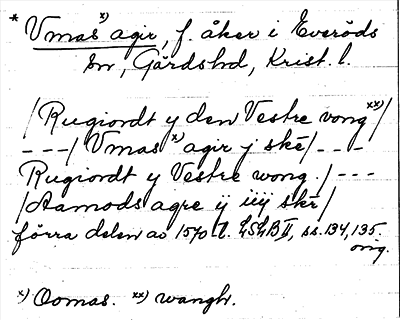 * Vmas x) agir, f. åker i Everöds
sn, Gärds hd, Krist. l.
/Rugiordt y den Vestre vong xx)/
---/ Vmas x) agir j skē/ ---
Rugiordt y Vestre wong. / ---
/Aamods agre ij iiij skē/
förra delen av 1570 t. LSLB II, ss. 134, 135.
orig.
x) Oomas. xx) wangh.